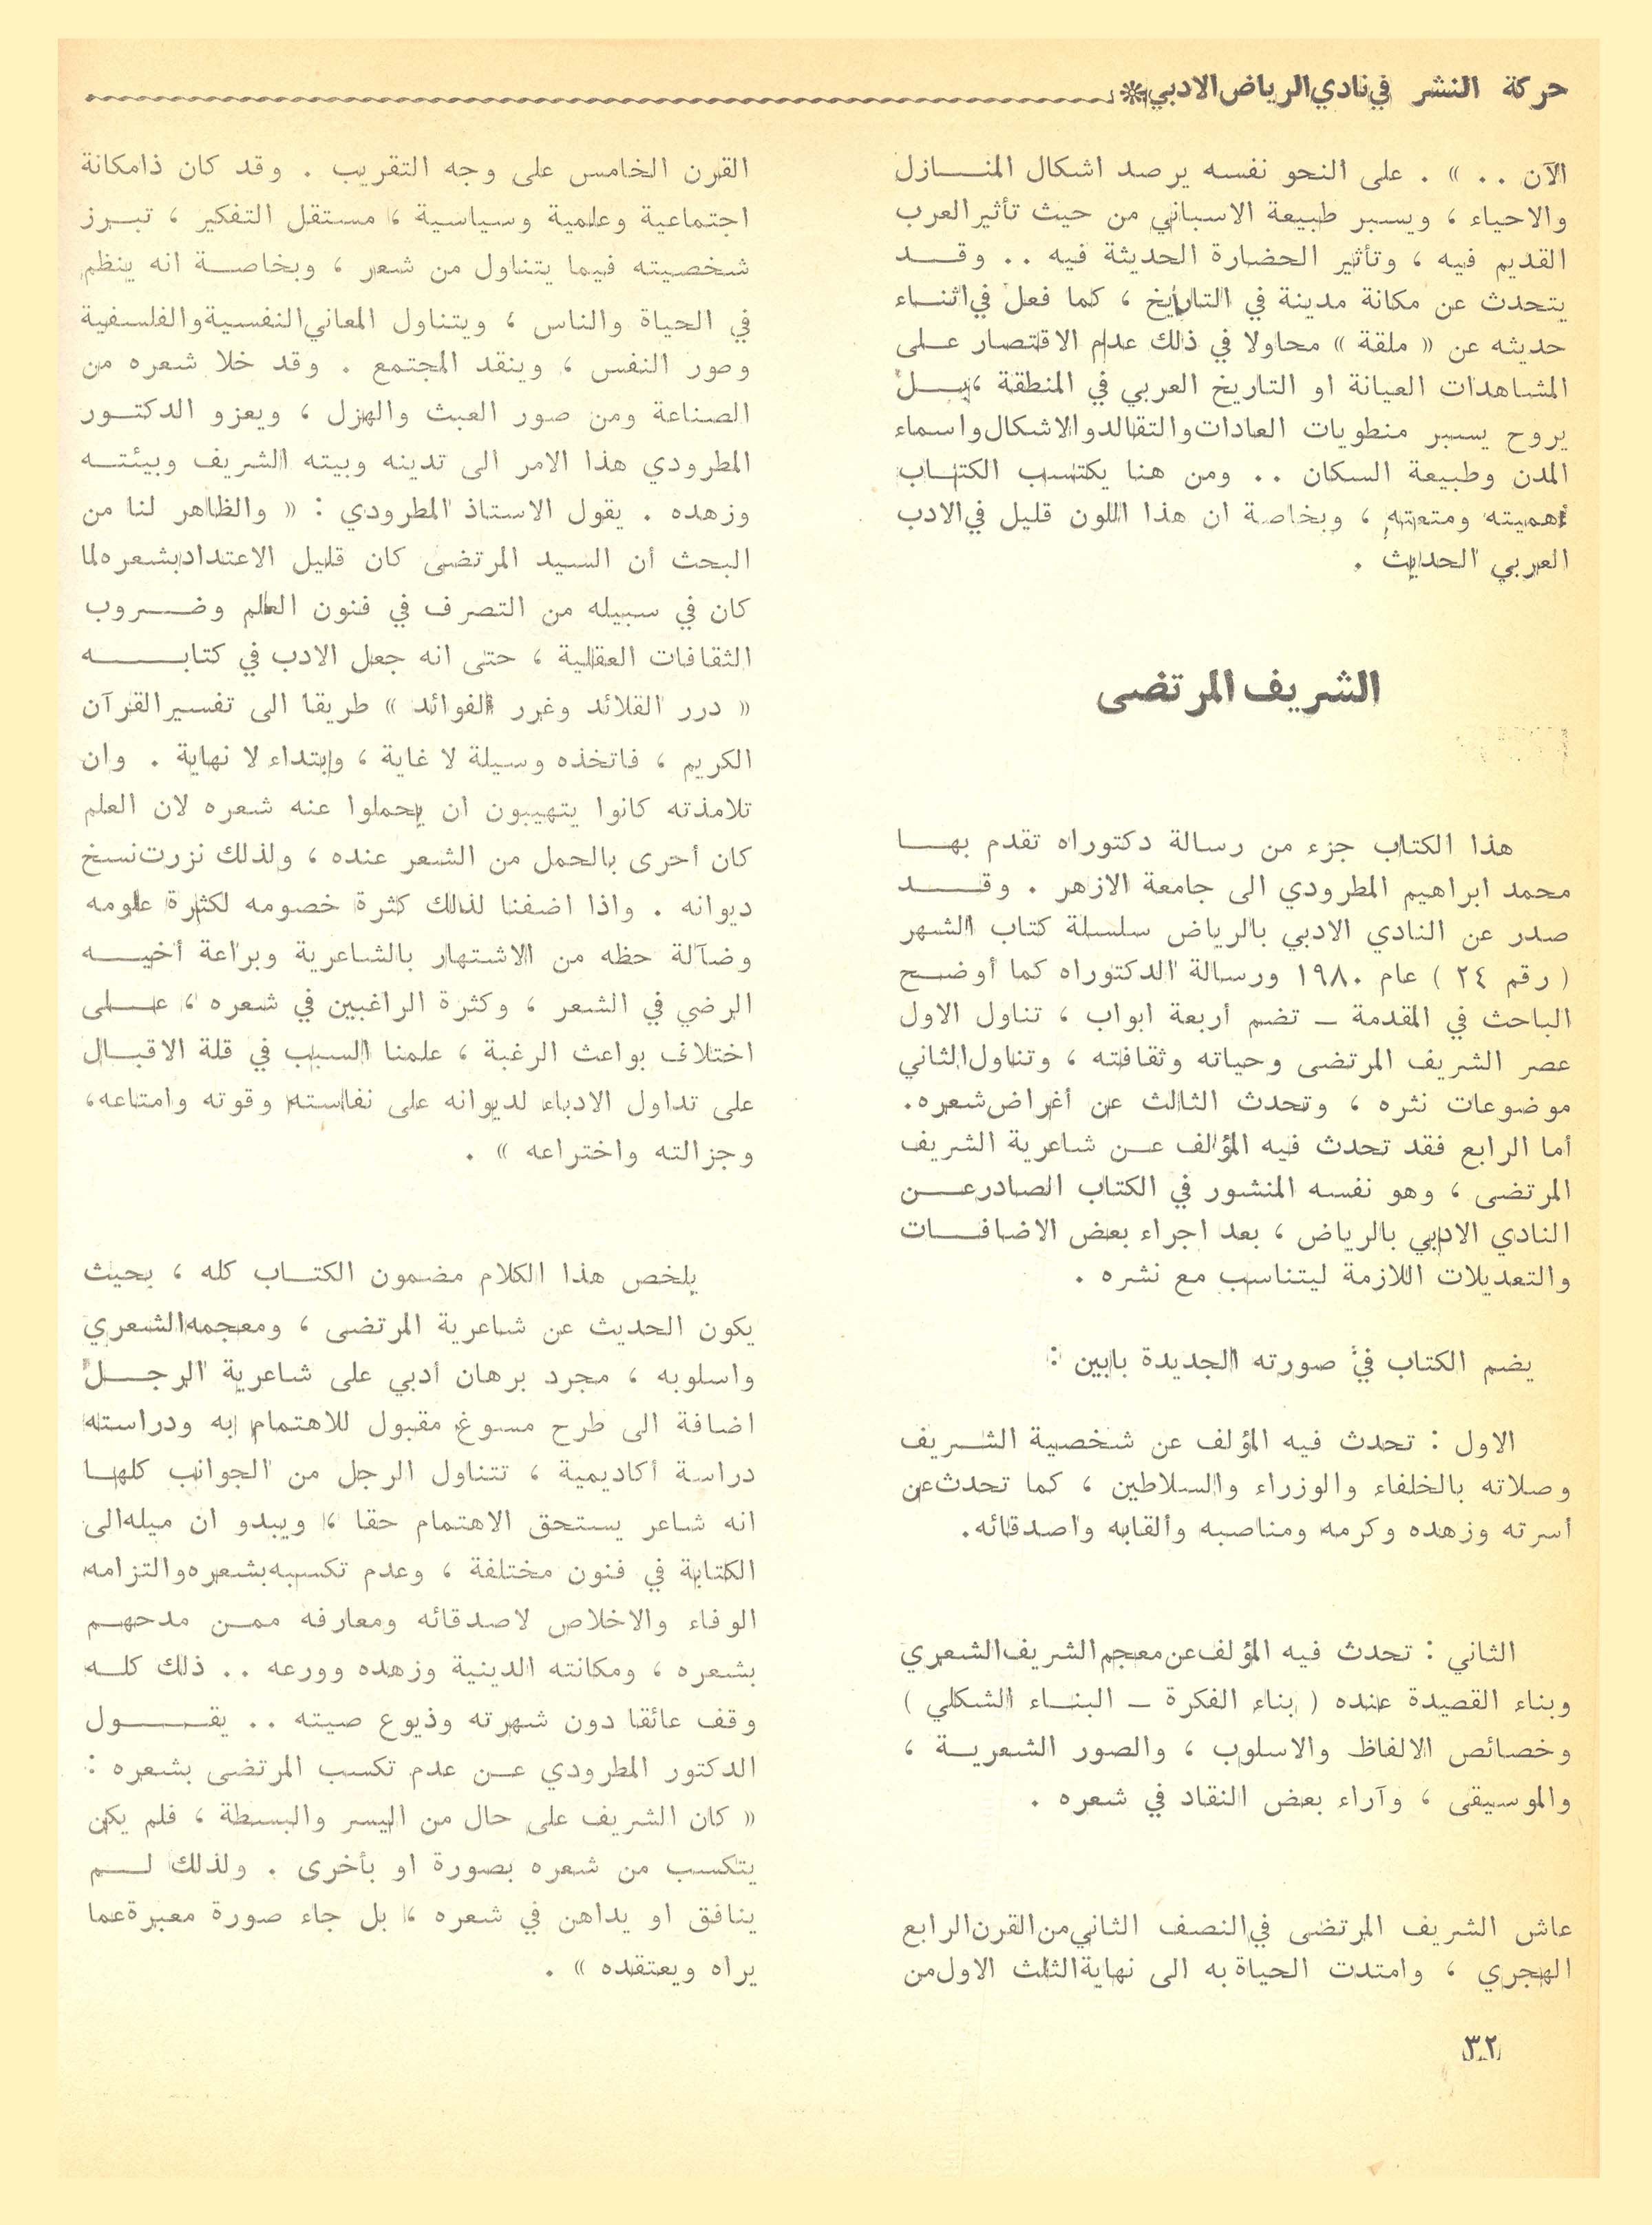 حركة النشر في نادي الرياض الادبي
الآن . . » . على النحو نفسه يرصد اشكال المنازل
والاحياء ، ويسبر طبيعة الاسباني من حيث تأثير العرب
القديم فيه ، وتأثير الحضارة الحديثة فيه . . وقد
يتحدث عن مكانة مدينة في التاريخ ، كما فعل في اثناء
حديثه عن « ملقة » محاولا في ذلك عدم الاقتصار على
المشاهدات العيانة او التاريخ العربي في المنطقة ، بل
يروح يسبر منطويات العادات والتقالد والاشكال واسماء
المدن وطبيعة السكان . . ومن هنا يكتسب الكتاب
أهميته ومتعته ، وبخاصة ان هذا اللون قليل في الادب
العربي الحديث .
الشريف المرتضى
هذا الكتاب جزء من رسالة دكتوراه تقدم بها
محمد ابراهيم المطرودي الى جامعة الازهر . وقد
صدر عن النادي الادبي بالرياض سلسلة كتاب الشهر
( رقم ٢٤ ) عام ١٩٨٠ ورسالة الدكتوراه كما أوضح
الباحث في المقدمة ـ تضم أربعة ابواب ، تناول الاول
عصر الشريف المرتضى وحياته وثقافته ، وتناول الثاني
موضوعات نثره ، وتحدث الثالث عن أغراض شعره .
أما الرابع فقد تحدث فيه المؤلف عن شاعرية الشريف
المرتضى ، وهو نفسه المنشور في الكتاب الصادر عن
النادي الادبي بالرياض ، بعد اجراء بعض الاضافات
والتعديلات اللازمة ليتناسب مع نشره .
يضم الكتاب في صورته الجديدة بابين :
الاول : تحدث فيه المؤلف عن شخصية الشريف
وصلاته بالخلفاء والوزراء والسلاطين ، كما تحدث عن
أسرته وزهده وكرمه ومناصبه وألقابه واصدقائه .
الثاني : تحدث فيه المؤلف عن معجم الشريف الشعري
وبناء القصيدة عنده ( بناء الفكرة ـ البناء الشكلي )
وخصائص الالفاظ والاسلوب ، والصور الشعرية ،
والموسيقى ، وآراء بعض النقاد في شعره .
عاش الشريف المرتضى في النصف الثاني من القرن الرابع
الهجري ، وامتدت الحياة به الى نهاية الثلث الاول من
القرن الخامس على وجه التقريب . وقد كان ذامكانة
اجتماعية وعلمية وسياسية ، مستقل التفكير ، تبرز
شخصيته فيما يتناول من شعر ، وبخاصة انه ينظم
في الحياة والناس ، ويتناول المعاني النفسية والفلسفية
وصور النفس ، وينقد المجتمع . وقد خلا شعره من
الصناعة ومن صور العبث والهزل ، ويعزو الدكتور
المطرودي هذا الامر الى تدينه وبيته الشريف وبيئته
وزهده . يقول الاستاذ المطرودي : « والظاهر لنا من
البحث أن السيد المرتضى كان قليل الاعتداد بشعره لما
كان في سبيله من التصرف في فنون العلم وضروب
الثقافات العقلية ، حتى انه جعل الادب في كتابه
« درر القلائد وغرر الفوائد » طريقا الى تفسير القرآن
الكريم ، فاتخذه وسيلة لا غاية ، وابتداء لا نهاية . وان
تلامذته كانوا يتهيبون ان يحملوا عنه شعره لان العلم
كان أحرى بالحمل من الشعر عنده ، ولذلك نزرت نسخ
ديوانه . واذا اضفنا لذلك كثرة خصومه لكثرة علومه
وضآلة حظه من الاشتهار بالشاعرية وبراعة أخيه
الرضي في الشعر ، وكثرة الراغبين في شعره ، على
اختلاف بواعث الرغبة ، علمنا السبب في قلة الاقبال
على تداول الادباء لديوانه على نفاسته وقوته وامتاعه ،
وجزالته واختراعه » .
يلخص هذا الكلام مضمون الكتاب كله ، بحيث
يكون الحديث عن شاعرية المرتضى ، ومعجمه الشعري
واسلوبه ، مجرد برهان أدبي على شاعرية الرجل
اضافة الى طرح مسوغ مقبول للاهتمام به ودراسته
دراسة أكاديمية ، تتناول الرجل من الجوانب كلها
انه شاعر يستحق الاهتمام حقا ، ويبدو ان ميله الى
الكتابة في فنون مختلفة ، وعدم تكسبه بشعره والتزامه
الوفاء والاخلاص لاصدقائه ومعارفه ممن مدحهم
بشعره ، ومكانته الدينية وزهده وورعه . . ذلك كله
وقف عائقا دون شهرته وذيوع صيته . . يقول
الدكتور المطرودي عن عدم تكسب المرتضى بشعره :
« كان الشريف على حال من اليسر والبسطة ، فلم يكن
يتكسب من شعره بصورة او بأخرى . ولذلك لم
ينافق او يداهن في شعره ، بل جاء صورة معبرة عما
يراه ويعتقده » .
٣٢